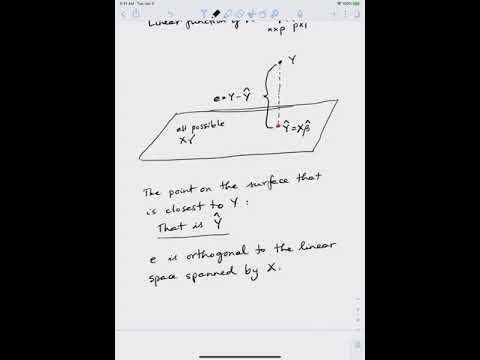 Linear function of
n×p p×1
Y
e = Y - Ŷ
all possible
Xγ
Ŷ = Xβ̂
The point on the surface that
is closest to Y :
That is Ŷ
e is orthogonal to the linear
space spanned by X.